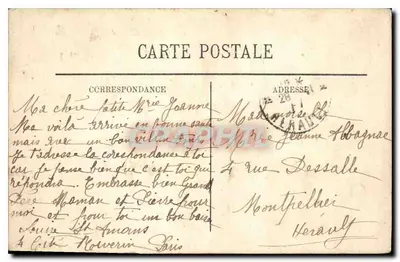 CARTE POSTALE
CORRESPONDANCE
Ma chère petite Mrie Jeanne
Me voilà arrivé en bonne santé
mais avec un bon
Je t'adresse la corespondance à toi
car je pense bien que c'est toi qui
répondra. Embrasse bien Grand
Père Maman et Pierre pour
moi et pour toi un bon baiser
St Amans
4 Cité Paris
ADRESSE
Mademoiselle
Marie Jeanne Abbagnac
4 rue Dessalle
Montpellier
Hérault